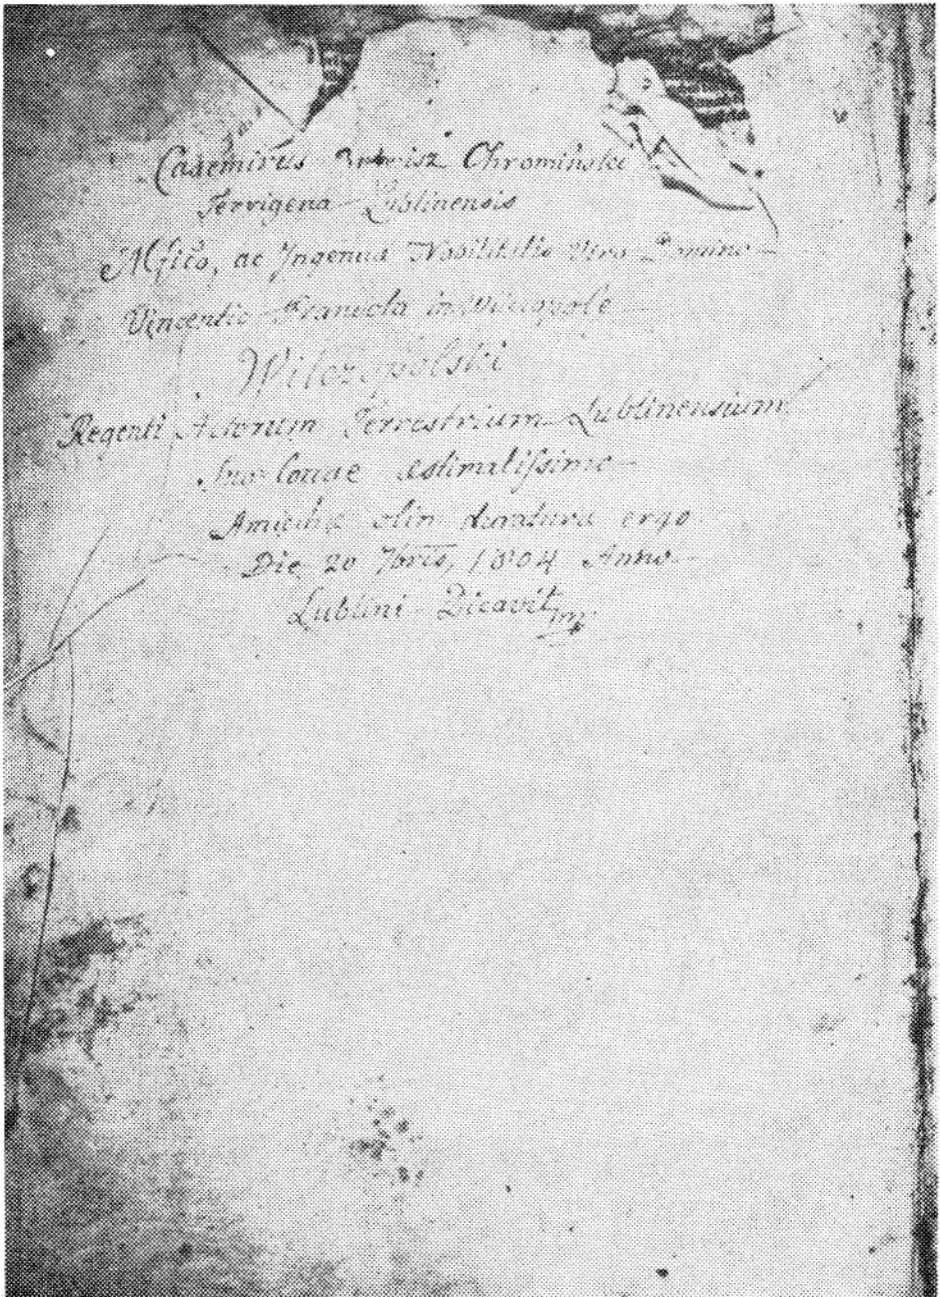 Casemirus Chromiński
Terrigena Lublinensis
Mfico, ac Ingenua Nobilitatis Viro Domino
Vincentio in Wilczopole
Wilczopolski
Regenti Actorum Terrestrium Lublinensium
Suo estimatissimo
Amicitiæ olim duratura ergo
Die 20 7bris, 1804 Anno
Lublini Dicavit